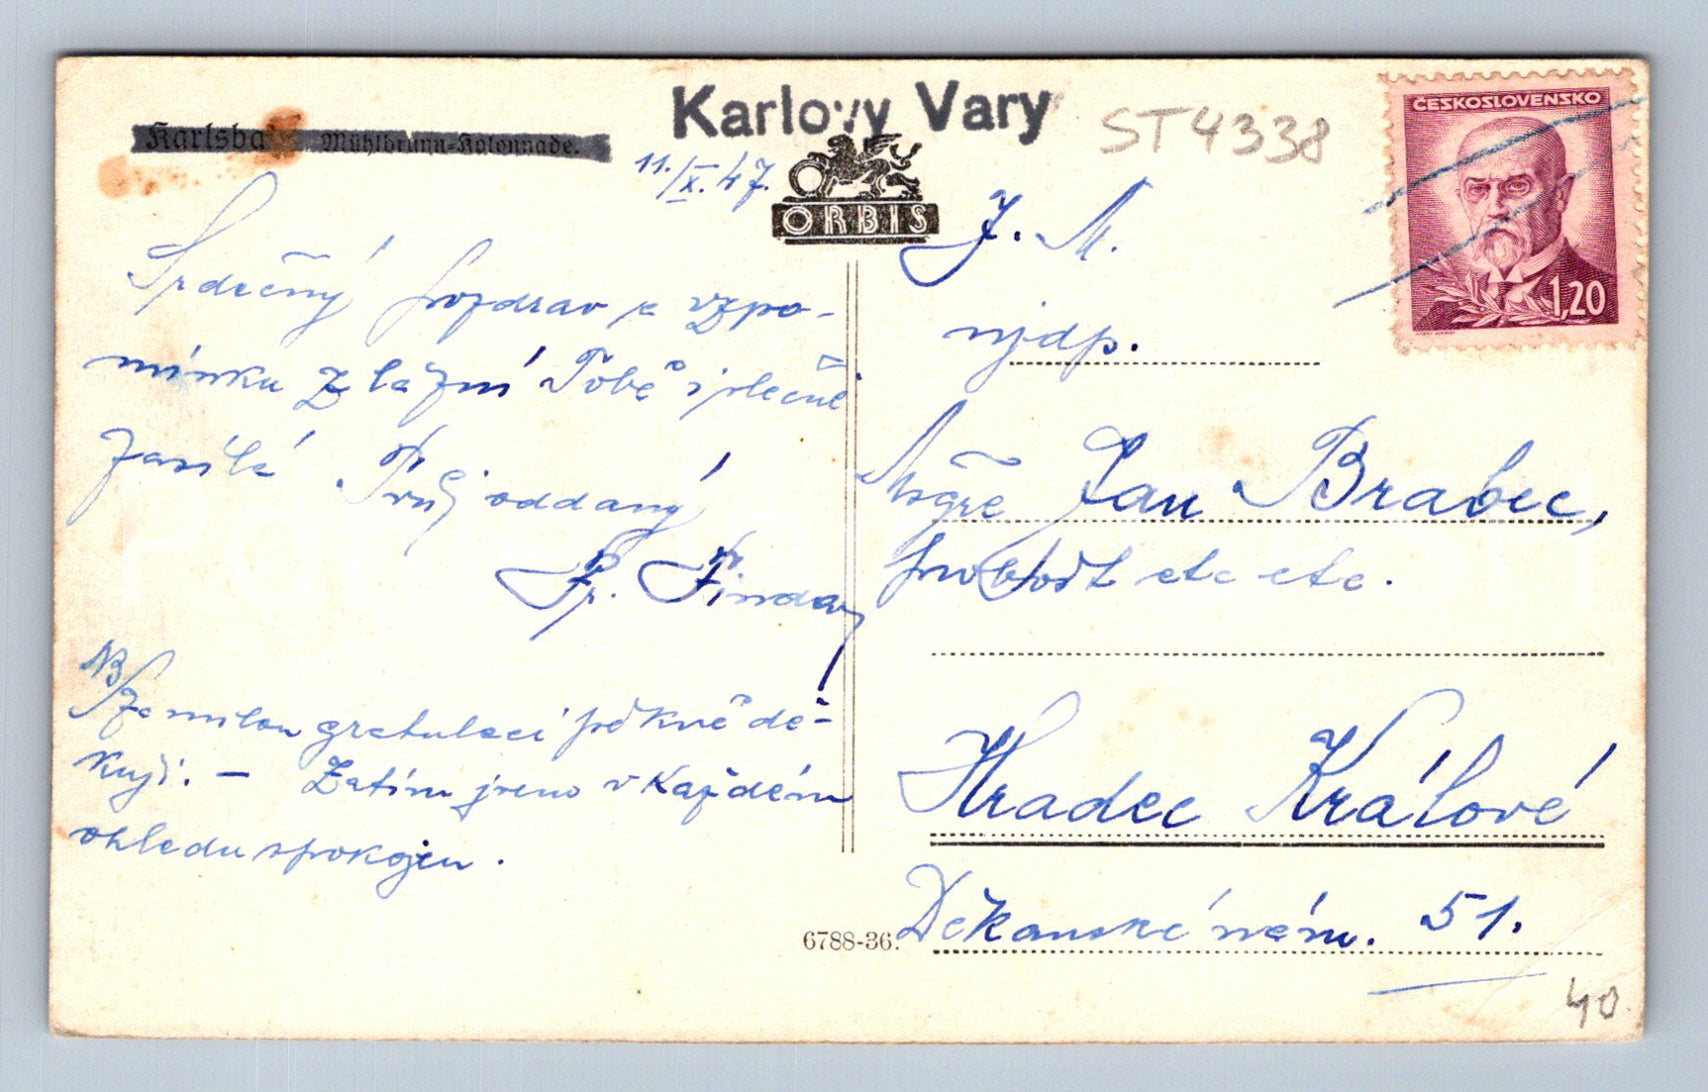 Karlsbad Mühlbrunn-Kolonnade.
Karlovy Vary
ST4338
11./X. 47.
ORBIS
ČESKOSLOVENSKO
1,20
Srdečný pozdrav a vzpo-
mínku z lázní Tobě i slečně
zasílá Tvůj oddaný
Fr.
NB/ Za milou gratulaci pěkně dě-
kuji. — Zatím jsem v každém
ohledu spokojen.
J. M.
njdp.
Msgre Jan Brabec,
probošt etc etc.
Hradec Králové
Děkanské nám. 51.
6788-36.
40